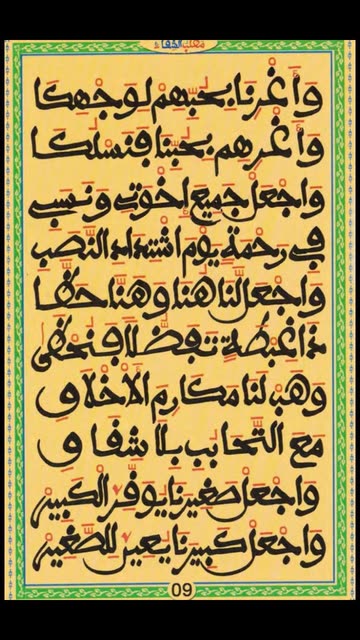 مطلب الشفاء
وَأَغْرِنَا بِحُبِّهِمْ لِوَجْهِكَا
وَأَغْرِهِمْ بِحُبِّنَا فَنَسْلُكَا
وَاجْعَلْ جَمِيعَ إِخْوَتِي وَنَسَبِي
فِي رَحْمَةٍ يَوْمَ اشْتِدَادِ النَّصَبِ
وَاجْعَلْ لَنَا هُنَا وَهُنَّا حَظَّا
ذَا غِبْطَةٍ تَفَضُّلًا فَنَحْظَى
وَهَبْ لَنَا مَكَارِمَ الْأَخْلَاقِ
مَعَ التَّحَابُبِ بِلَا شِقَاقِ
وَاجْعَلْ صَغِيرَنَا يُوَقِّرُ الْكَبِيرْ
وَاجْعَلْ كَبِيرَنَا يُعِينُ لِلصَّغِيرْ
09